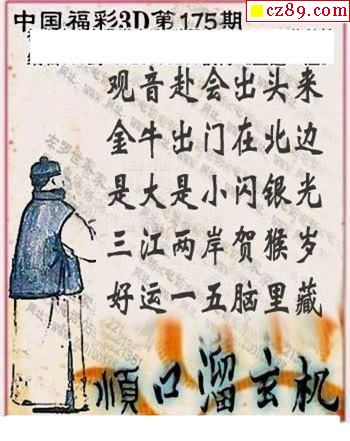 中国福彩3D第175期
cz89.com
观音赴会出头来
金牛出门在北边
是大是小闪银光
三江两岸贺猴岁
好运一五脑里藏
顺口溜玄机